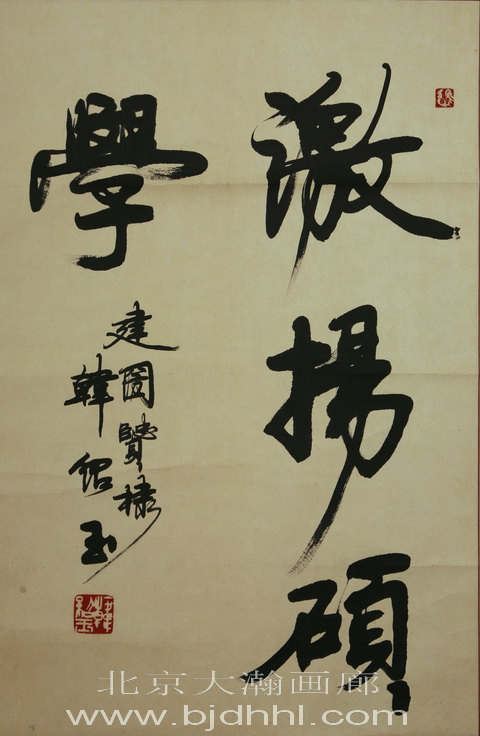 激揚碩
學
建國賢棣
韓紹玉
北京大瀚画廊
www.bjdhhl.com